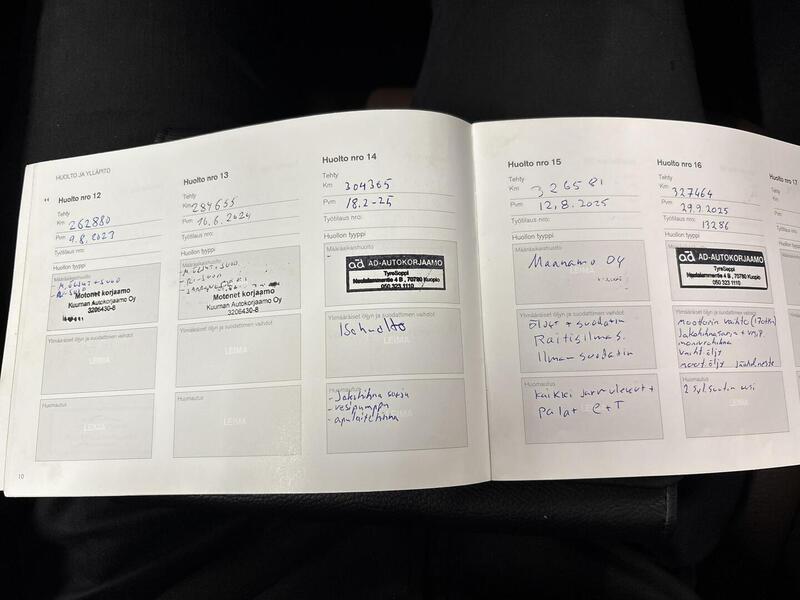 HUOLTO JA YLLÄPITO
Huolto nro 12
Tehty
Km 262880
Pvm 9.8.2023
Työtilaus nro:
Huollon tyyppi
Määräaikaishuolto
Motonet korjaamo
Kuurnan Autokorjaamo Oy
3206430-8
Ylimääräiset öljyn ja suodattimen vaihdot
LEIMA
Huomautus
LEIMA
10
Huolto nro 13
Tehty
Km 284655
Pvm 10.6.2024
Työtilaus nro:
Huollon tyyppi
Määräaikaishuolto
Motonet korjaamo
Kuurnan Autokorjaamo Oy
3206430-8
Ylimääräiset öljyn ja suodattimen vaihdot
LEIMA
Huomautus
LEIMA
Huolto nro 14
Tehty
Km 304365
Pvm 18.2-25
Työtilaus nro:
Huollon tyyppi
ad AD-AUTOKORJAAMO
TyreSeppi
Neulalammentie 4 B, 70780 Kuopio
050 323 1110
Ylimääräiset öljyn ja suodattimen vaihdot
Isohuolto
Huomautus
- Jakohihna sarja
- vesipumppu
- apulaitehihna
Huolto nro 15
Tehty
Km 326581
Pvm 12.8.2025
Työtilaus nro:
Huollon tyyppi
Määräaikaishuolto
Mannamo OY
LEIMA
Ylimääräiset öljyn ja suodattimen vaihdot
Öljyt + suodatin
Raitisilmas.
Ilmansuodatin
Huomautus
Kaikki jarrulevyt +
palat e + T
Huolto nro 16
Tehty
Km 327464
Pvm 29.9.2025
Työtilaus nro: 13286
Huollon tyyppi
ad AD-AUTOKORJAAMO
TyreSeppi
Neulalammentie 4 B, 70780 Kuopio
050 323 1110
Ylimääräiset öljyn ja suodattimen vaihdot
moottorin vaihto (170tkm)
Jakohihnasarja + vesip.
moniurahihna
vaiht öljy
moot.öljy jäähdneste
Huomautus
Huolto nro 17
Tehty
Km
Pvm